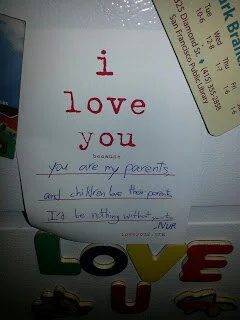 i
love
you
because
you are my parents
and children love their parents
I'd be nothing without
NUR
Park Bran
Tue
10-6
Wed
12-8
Thu
1-7
Fri
1-6
Diamond St. • (415) 355-
San Francisco Public Library
LOVE
U